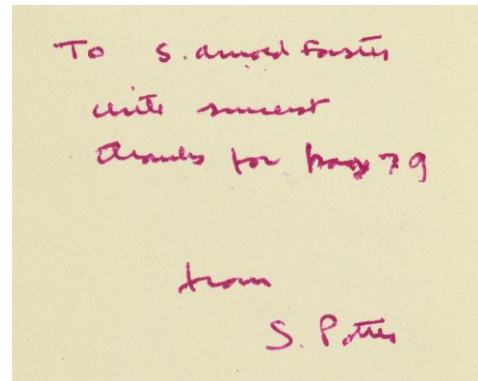 To S. Arnold Forster
with sincerest
thanks for page 79
from
S. Potter